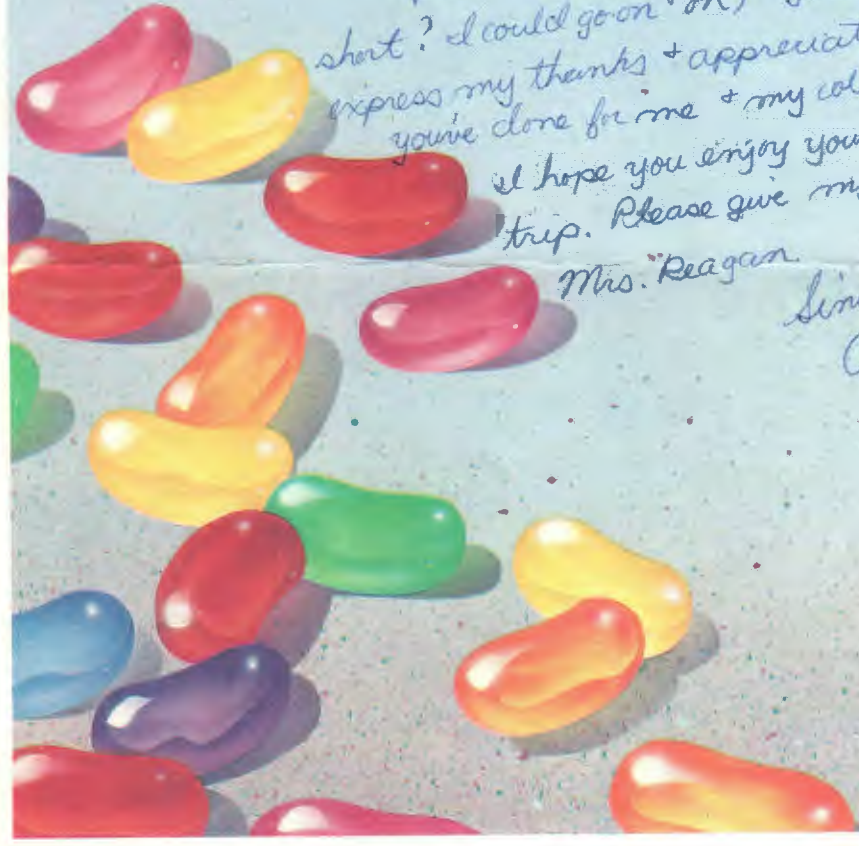 short? I could go on
express my thanks + appreciat
you've done for me + my col
I hope you enjoy you
trip. Please give m
Mrs. Reagan.
Sin